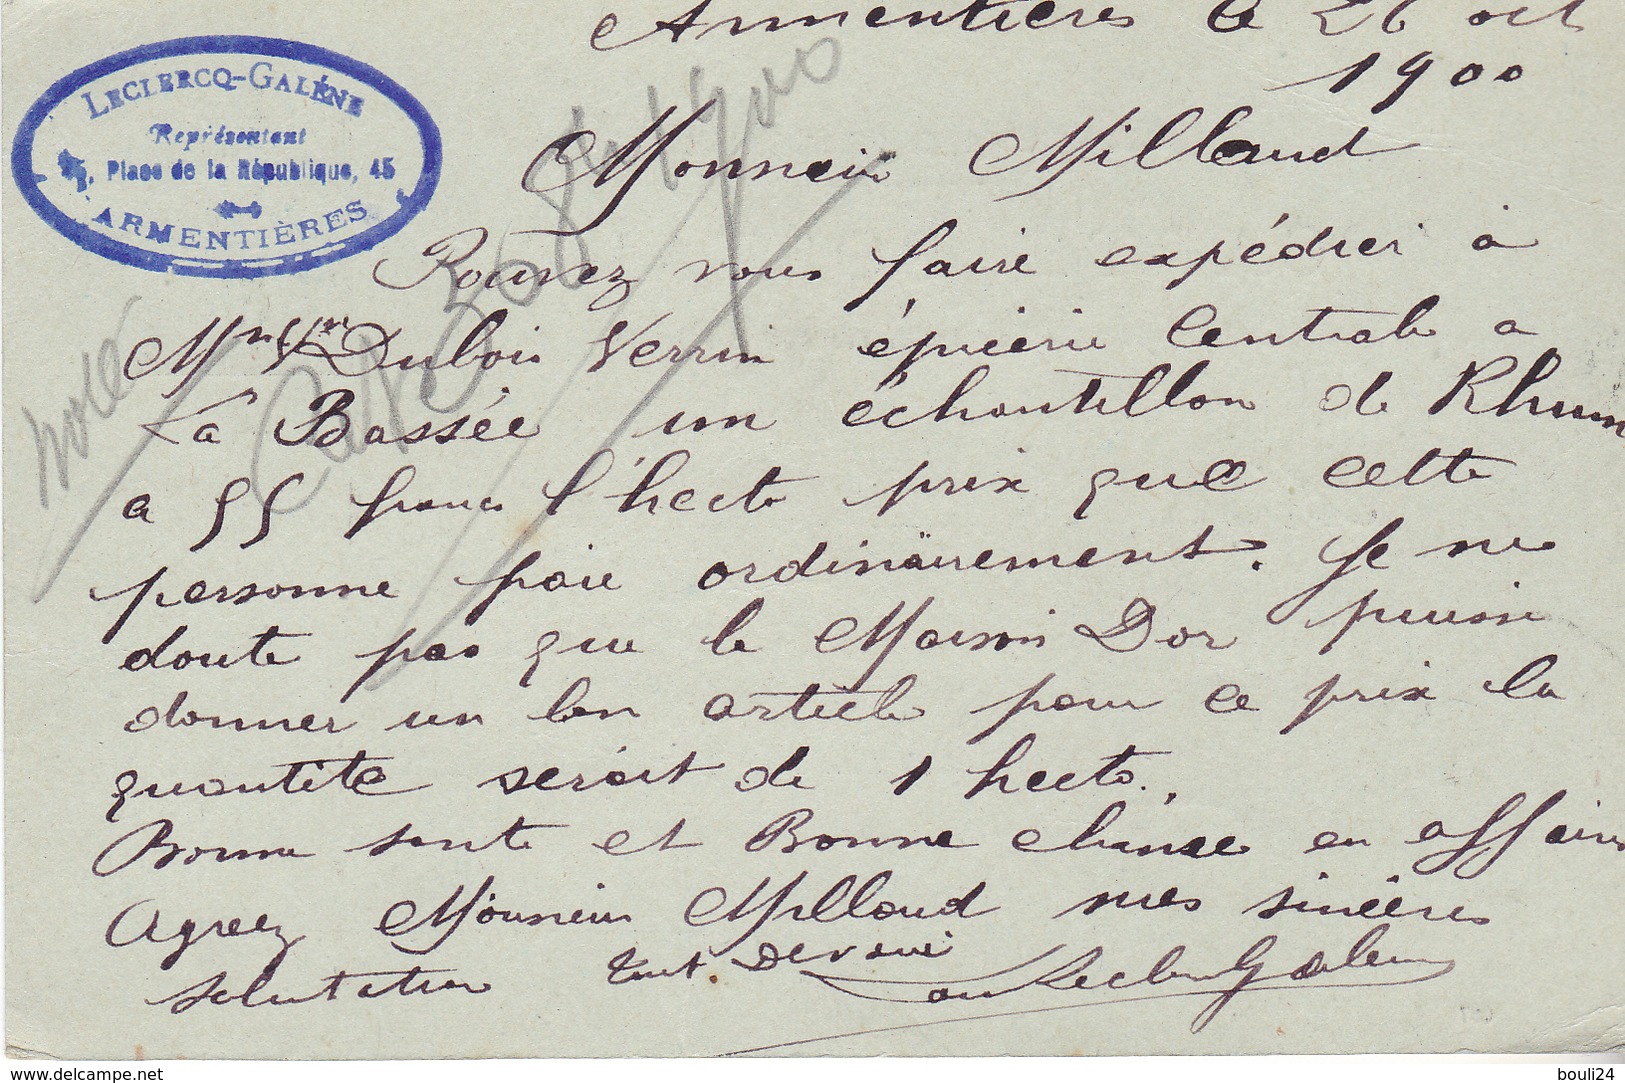 Armentières le 26 oct
1900
LECLERCQ-GALÉNE
Représentant
45, Place de la République, 45
ARMENTIÈRES
Monsieur Millaud
Pouvez vous faire expédier à
Mr Vn Dubois Verrin épicerie Centrale a
La Bassée un échantillon de Rhum
a 55 francs l'hecto prix que cette
personne paie ordinairement. Je ne
doute pas que la Maison Dor puisse
donner un bon article pour ce prix la
quantité serait de 1 hecto.
Bonne sante et Bonne chance en affaires
Agreez Monsieur Millaud mes sincères
salutation
tout Devoué
Leclercq Galéne
noté
www.delcampe.net
bouli24